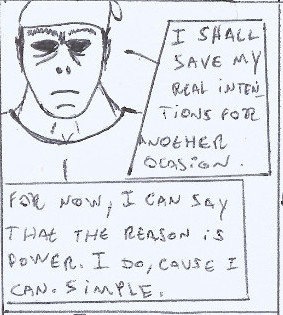 I SHALL
SAVE MY
REAL INTEN
TIONS FOR
ANOEHER
OCASION.
FOR NOW, I CAN SAY
THAT THE REASON IS
POWER. I DO, CAUSE I
CAN. SIMPLE.